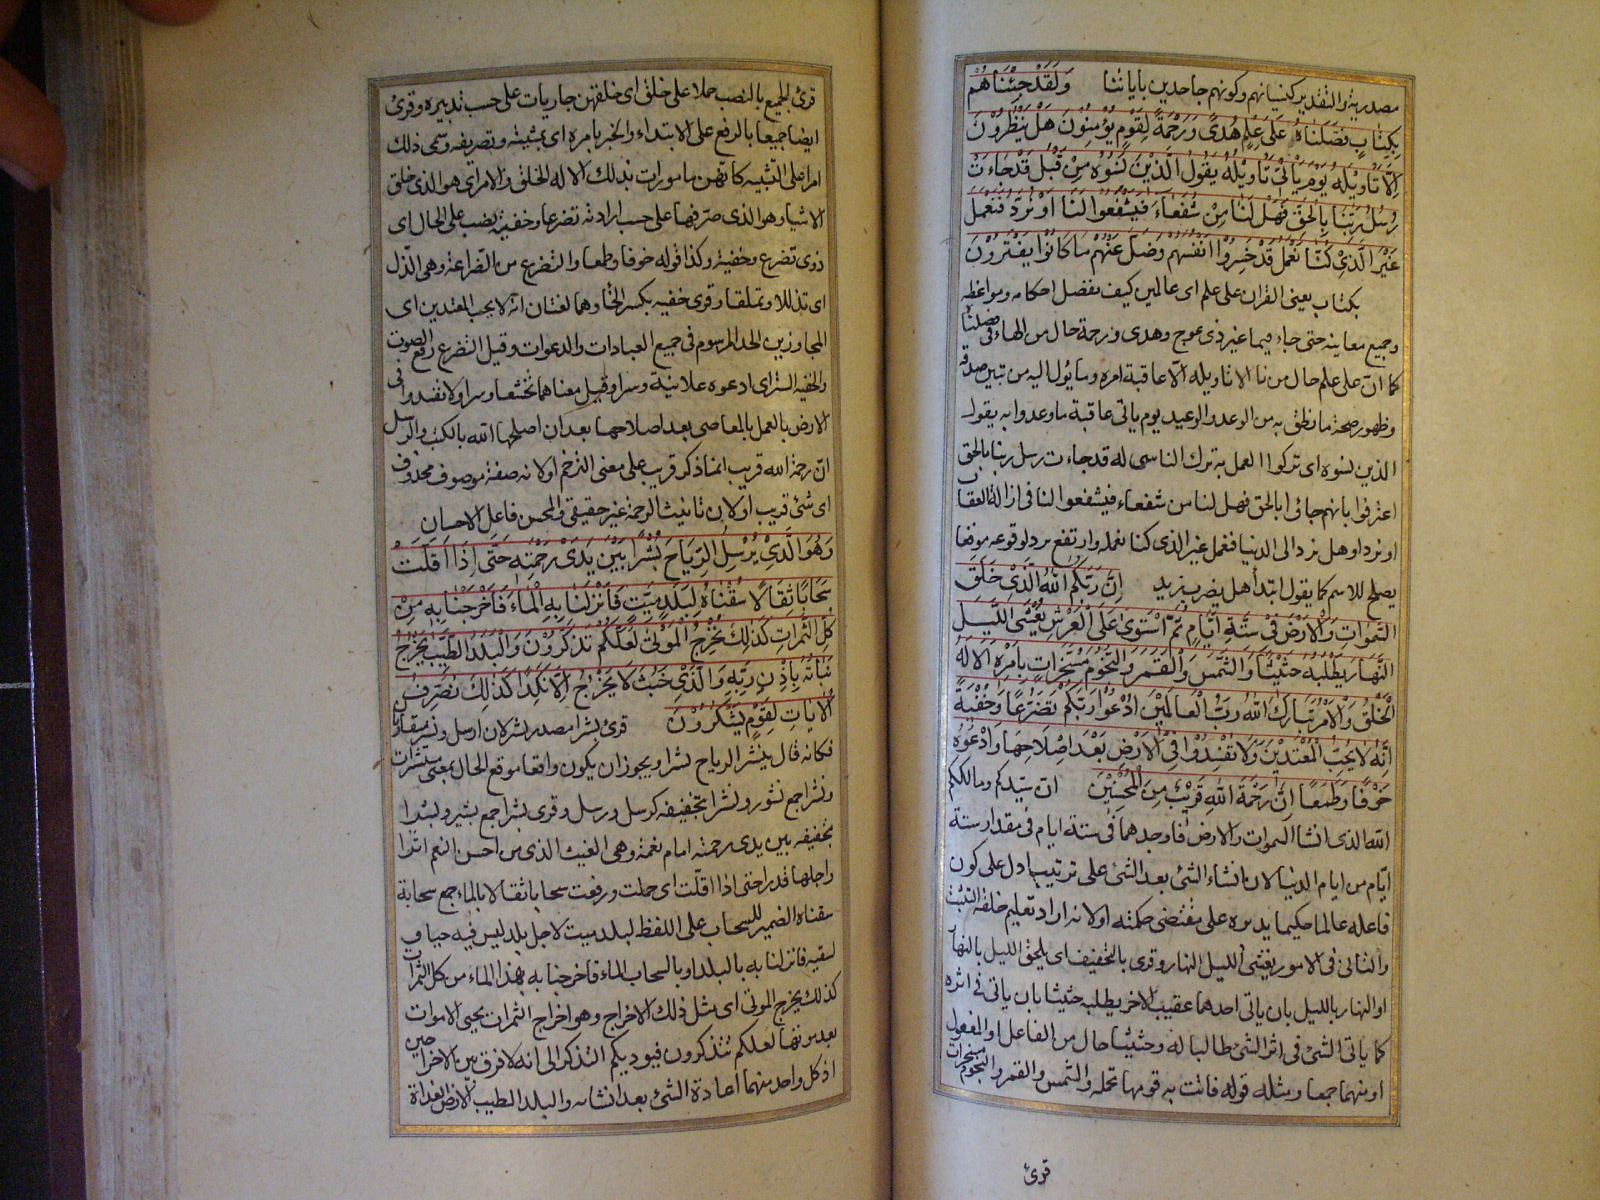 مصدرية والتقدير كنسيانهم وكونهم جاحدين بآياتنا وَلَقَدْ جِئْنَاهُمْ
بِكِتَابٍ فَصَّلْنَاهُ عَلَى عِلْمٍ هُدًى وَرَحْمَةً لِقَوْمٍ يُؤْمِنُونَ هَلْ يَنْظُرُونَ
اِلَّا تَاْوِيلَهُ يَوْمَ يَاْتِى تَاْوِيلُهُ يَقُولُ الَّذِيْنَ نَسُوْهُ مِنْ قَبْلُ قَدْ جَاءَتْ
رُسُلُ رَبِّنَا بِالْحَقِّ فَهَلْ لَنَا مِنْ شُفَعَاءَ فَيَشْفَعُوا لَنَا اَوْ نُرَدُّ فَنَعْمَلَ
غَيْرَ الَّذِىْ كُنَّا نَعْمَلُ قَدْ خَسِرُوْا اَنْفُسَهُمْ وَضَلَّ عَنْهُمْ مَا كَانُوْا يَفْتَرُوْنَ
بكتاب يعنى القرآن على علم اى عالمين كيف نفصل احكامه ومواعظه
وجميع معانيه حتى جاء قيما غير ذى عوج وهدى ورحمة حال من الهاء فى فصلناه
كما ان على علم حال من نا الا تاويله الا عاقبة امره وما يؤل اليه من تبين صدقه
وظهور صحة ما نطق به من الوعد والوعيد يوم ياتى عاقبة ما وعدوا به يقول
الذين نسوه اى تركوا العمل به ترك الناسى له قد جاءت رسل ربنا بالحق
اعترفوا بانهم جاؤا بالحق فهل لنا من شفعاء فيشفعوا لنا فى ازالة العقاب
او نرد او هل نرد الى الدنيا فنعمل غير الذى كنا نعمله وارتفع نرد لوقوعه موقعا
يصلح للاسم كما يقول ابتداً هل يضرب زيد اِنَّ رَبَّكُمُ اللّٰهُ الَّذِىْ خَلَقَ
السَّمٰوَاتِ وَالْاَرْضَ فِىْ سِتَّةِ اَيَّامٍ ثُمَّ اسْتَوٰى عَلَى الْعَرْشِ يُغْشِى اللَّيْلَ
النَّهَارَ يَطْلُبُهُ حَثِيْثًا وَالشَّمْسَ وَالْقَمَرَ وَالنُّجُوْمَ مُسَخَّرَاتٍ بِاَمْرِهِ اَلَا لَهُ
الْخَلْقُ وَالْاَمْرُ تَبَارَكَ اللّٰهُ رَبُّ الْعَالَمِيْنَ اُدْعُوْا رَبَّكُمْ تَضَرُّعًا وَخُفْيَةً
اِنَّهُ لَا يُحِبُّ الْمُعْتَدِيْنَ وَلَا تُفْسِدُوْا فِى الْاَرْضِ بَعْدَ اِصْلَاحِهَا وَادْعُوْهُ
خَوْفًا وَطَمَعًا اِنَّ رَحْمَةَ اللّٰهِ قَرِيْبٌ مِنَ الْمُحْسِنِيْنَ ان سيدكم ومالككم
الله الذى انشأ السموات والارض فاوجدهما فى ستة ايام فى مقدار ستة
ايام من ايام الدنيا لان انشاء الشئ بعد الشئ على ترتيب ادل على كون
فاعله عالما حكيما يدبره على مقتضى حكمته او لانه اراد تعليم خلقه التثبت
والتانى فى الامور يغشى الليل النهار وقرى بالتخفيف اى يلحق الليل بالنهار
او النهار بالليل بان ياتى احدهما عقيب الآخر يطلبه حثيثا بان ياتى فى اثره
كما ياتى الشئ فى اثر الشئ طالبا له وحثيثا حال من الفاعل او المفعول
او منهما جمعا ومثله قوله فاتت به قومها تحمله والشمس والقمر والنجوم مسخرات
قرئ
قرئ الجميع بالنصب حملا على خلق اى خلقهن جاريات على حسب تدبيره وقرئ
ايضا جميعا بالرفع على الابتداء والخبر بامره اى بمشيئته وتصريفه وسمى ذلك
امرا على التشبيه كانهن مامورات بذلك الا له الخلق والامر اى هو الذى خلق
الاشياء وهو الذى صرفها على حسب ارادته تضرعا وخفية نصب على الحال اى
ذوى تضرع وخفية وكذا قوله خوفا وطمعا والتضرع من الضراعة وهى الذل
اى تذللا وتملقا وقرى خفية بكسر الخاء وهما لغتان انه لا يحب المعتدين اى
المجاوزين الحد المرسوم فى جميع العبادات والدعوات وقيل التضرع رفع الصوت
والخفية السر اى ادعوه علانية وسرا وقيل معناهما تخشعا وسرا ولا تفسدوا فى
الارض بالعمل بالمعاصى بعد اصلاحها بعد ان اصلحها الله بالكتب والرسل
ان رحمة الله قريب انما ذكر قريب على معنى الترحم او لانه صفة موصوف محذوف
اى شئ قريب او لان تانيث الرحمة غير حقيقى والمحسن فاعل الاحسان
وَهُوَ الَّذِىْ يُرْسِلُ الرِّيَاحَ نُشْرًا بَيْنَ يَدَىْ رَحْمَتِهِ حَتّٰى اِذَا اَقَلَّتْ
سَحَابًا ثِقَالًا سُقْنَاهُ لِبَلَدٍ مَيِّتٍ فَاَنْزَلْنَا بِهِ الْمَاءَ فَاَخْرَجْنَا بِهِ مِنْ
كُلِّ الثَّمَرَاتِ كَذٰلِكَ نُخْرِجُ الْمَوْتٰى لَعَلَّكُمْ تَذَكَّرُوْنَ وَالْبَلَدُ الطَّيِّبُ يَخْرُجُ
نَبَاتُهُ بِاِذْنِ رَبِّهِ وَالَّذِىْ خَبُثَ لَا يَخْرُجُ اِلَّا نَكِدًا كَذٰلِكَ نُصَرِّفُ
الْاٰيَاتِ لِقَوْمٍ يَشْكُرُوْنَ قرئ نشرا مصدر نشر لان ارسل ونشر متقاربان
فكانه قال ينشر الرياح نشرا ويجوز ان يكون واقعا موقع الحال بمعنى منتشرات
ونشرا جمع نشور ونشرا بتخفيفه كرسل ورسل وقرى بشرا جمع بشير وبشرا
بتخفيفه بين يدى رحمته امام نعمته وهى الغيث الذى من احسن النعم اثرا
واجلها قدرا حتى اذا اقلت اى حملت ورفعت سحابا ثقالا بالماء جمع سحابة
سقناه الضمير للسحاب على اللفظ لبلد ميت لاجل بلد ليس فيه حيا و
لسقيه فانزلنا به بالبلد او بالسحاب الماء فاخرجنا به بهذا الماء من كل الثمرات
كذلك نخرج الموتى اى مثل ذلك الاخراج وهو اخراج الثمرات يحيى الاموات
بعد موتها لعلكم تتذكرون فيؤديكم التذكر الى انه لا فرق بين الاخراجين
اذ كل واحد منهما اعادة الشئ بعد انشائه والبلد الطيب الارض العذاة